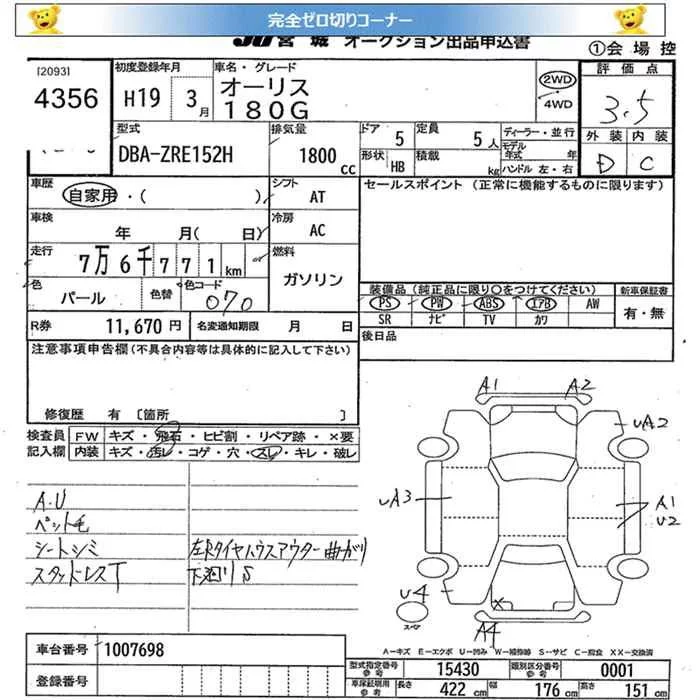 完全ゼロ切りコーナー
JU宮城 オークション出品申込書 ①会場控
[2093]
4356
初度登録年月 H19 3月
車名・グレード オーリス 180G
2WD 4WD
評価点 3.5
外装 内装
D C
型式 DBA-ZRE152H
排気量 1800cc
ドア 5 定員 5人
形状 HB 積載 kg
ディーラー・並行
モデル年式 年
ハンドル 左・右
車歴 自家用・( )
シフト AT
セールスポイント (正常に機能するものに限ります)
車検 年 月(日)
冷房 AC
走行 7万6千771km
燃料 ガソリン
色 パール 色替 色コード 070
装備品(純正品に限り○をつけてください) 新車保証書
PS PW ABS エアB AW 有・無
SR ナビ TV カワ
R券 11,670円 名変通知期限 月 日
後日品
注意事項申告欄(不具合内容等は具体的に記入して下さい)
修復歴 有 [箇所 ]
検査員記入欄
FW キズ・飛石・ヒビ割・リペア跡・×要
内装 キズ・汚レ・コゲ・穴・スレ・キレ・破レ
A.U
ペット毛
シートシミ 左Rタイヤハウスアウター曲がり
スタッドレスT 下廻りS
A1 A2
UA2
UA3
A1
U2
U4
スペア
X
A4
A-キズ E-エクボ U-凹み W-補修跡 S-サビ C-腐食 XX-交換済
車台番号 1007698
登録番号
型式指定番号 15430 類別区分番号 0001
長さ 422cm 幅 176cm 高さ 151cm